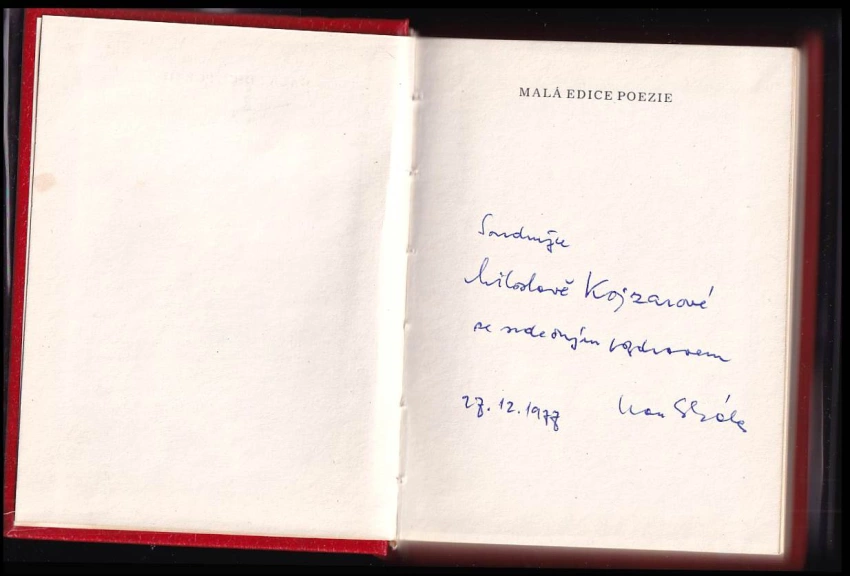 MALÁ EDICE POEZIE
Soudružce
Miloslavě Kojzarové
se srdečným pozdravem
27.12.1977 Ivan Skála